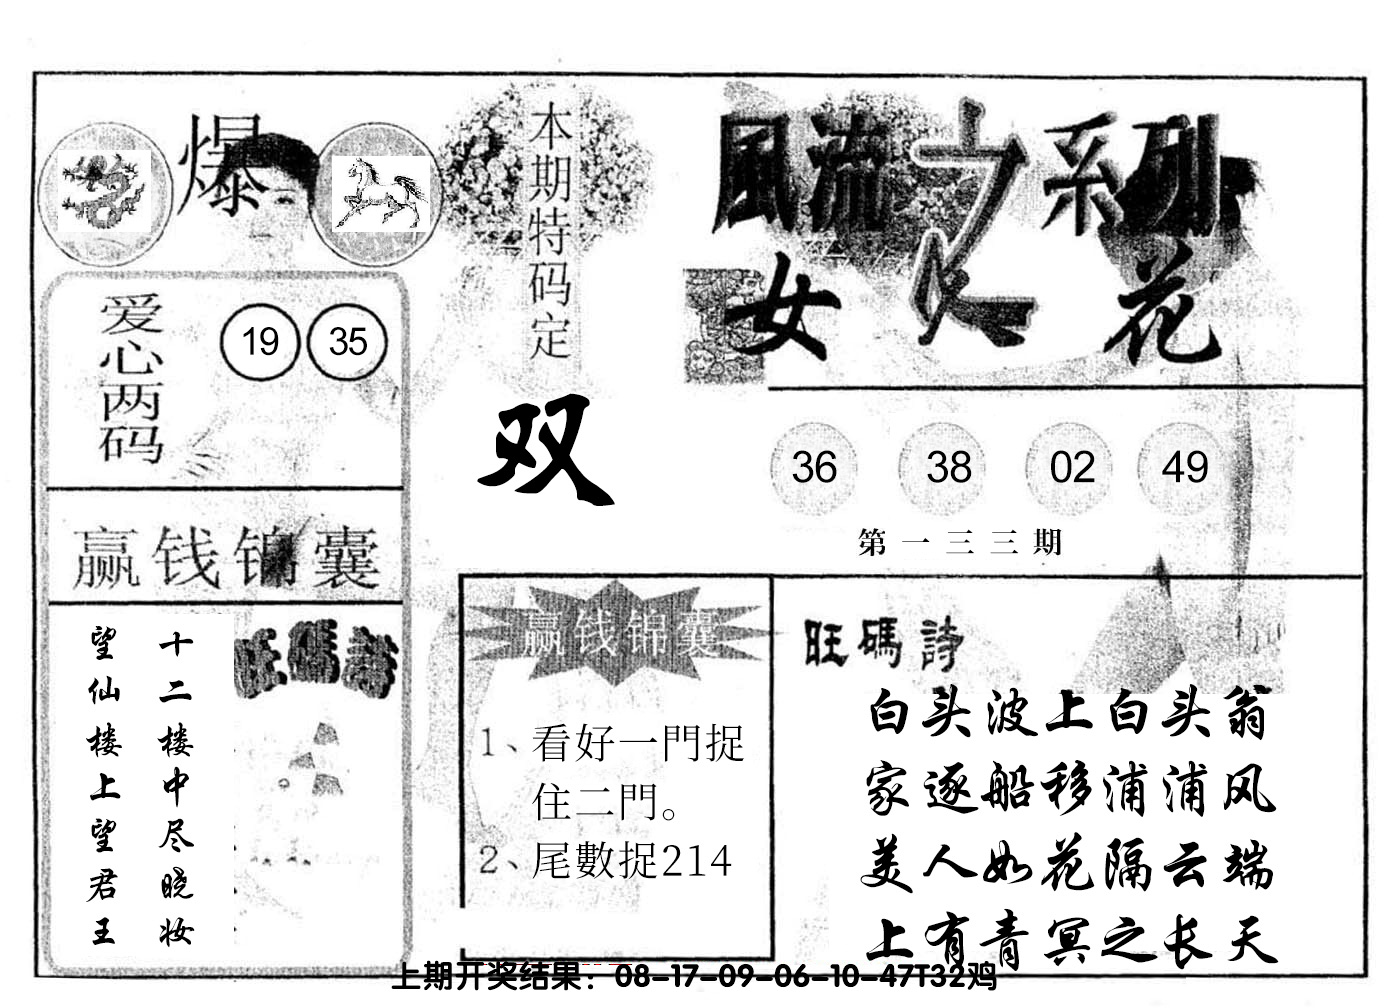 爆
本期特码定
双
風流之系列
女人花
爱心两码
19 35
36 38 02 49
第一三三期
赢钱锦囊
十二楼中尽晓妆
望仙楼上望君王
旺碼詩
赢钱锦囊
1、看好一門捉
住二門。
2、尾數捉214
旺碼詩
白头波上白头翁
家逐船移浦浦风
美人如花隔云端
上有青冥之长天
上期开奖结果：08-17-09-06-10-47T32鸡